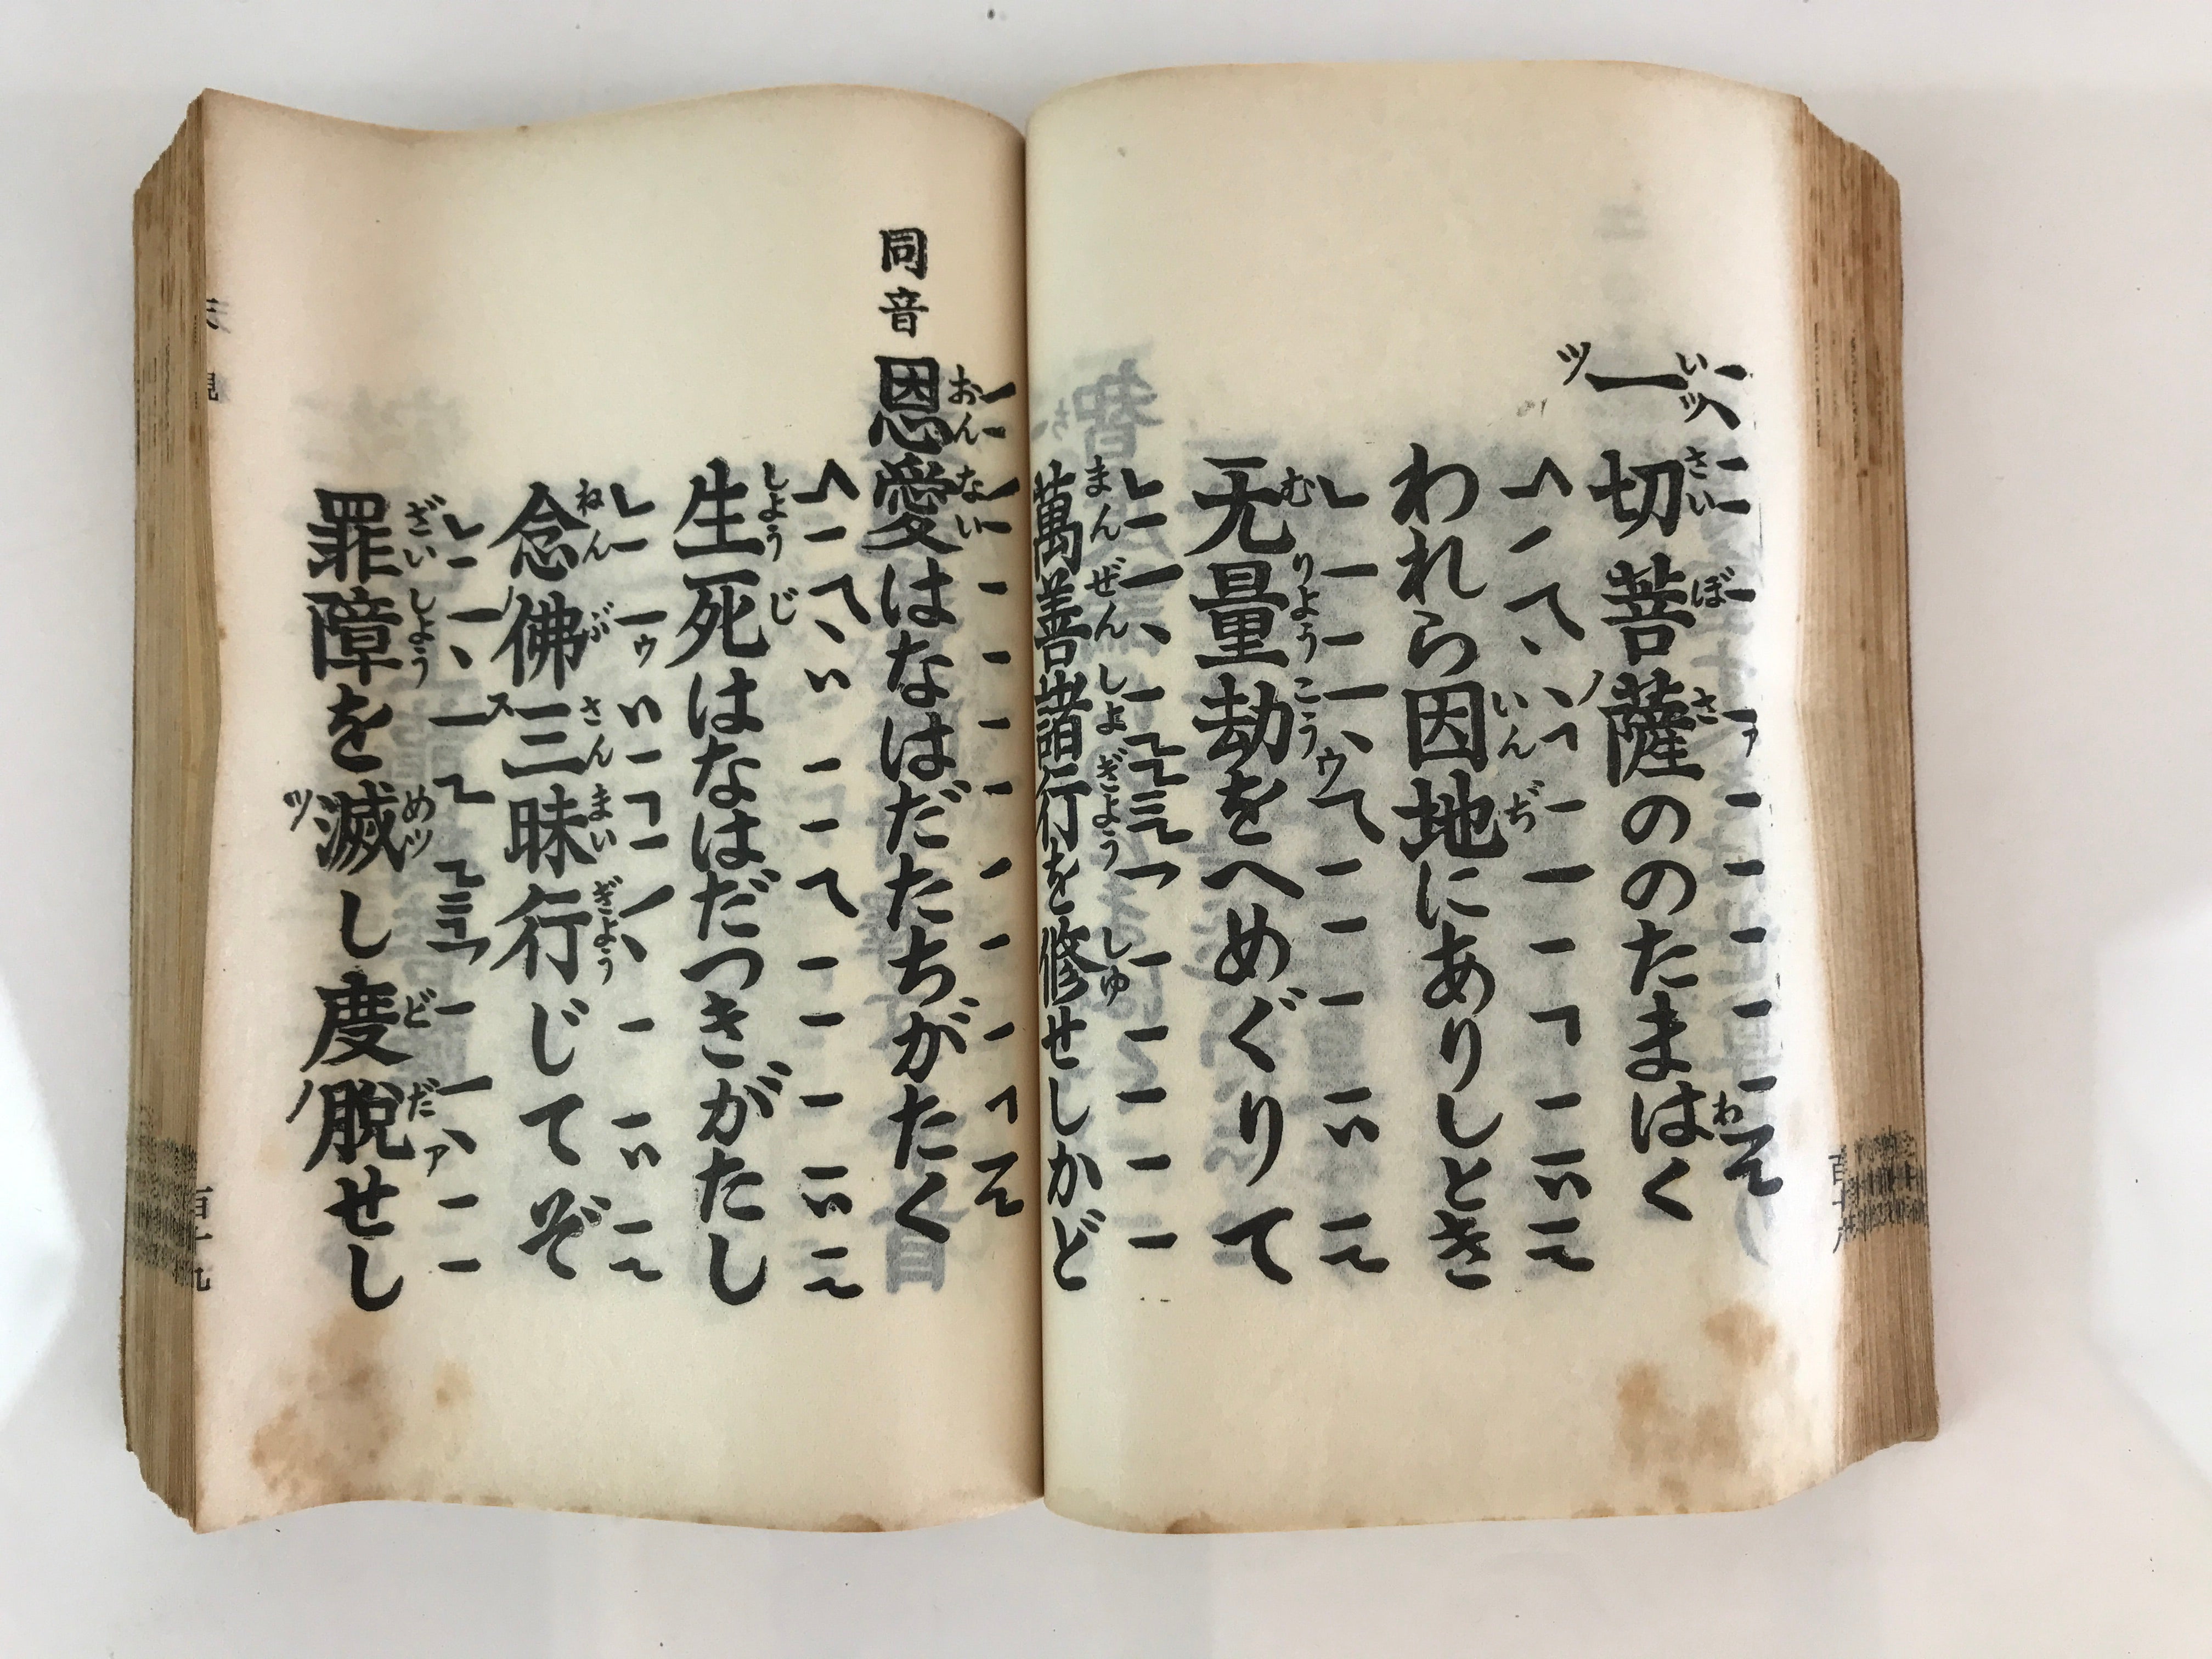 一切菩薩ののたまはく
われら因地にありしとき
无量劫をへめぐりて
萬善諸行を修せしかど
同音 恩愛はなはだたちがたく
生死はなはだつきがたし
念佛三昧行じてぞ
罪障を滅し度脱せし